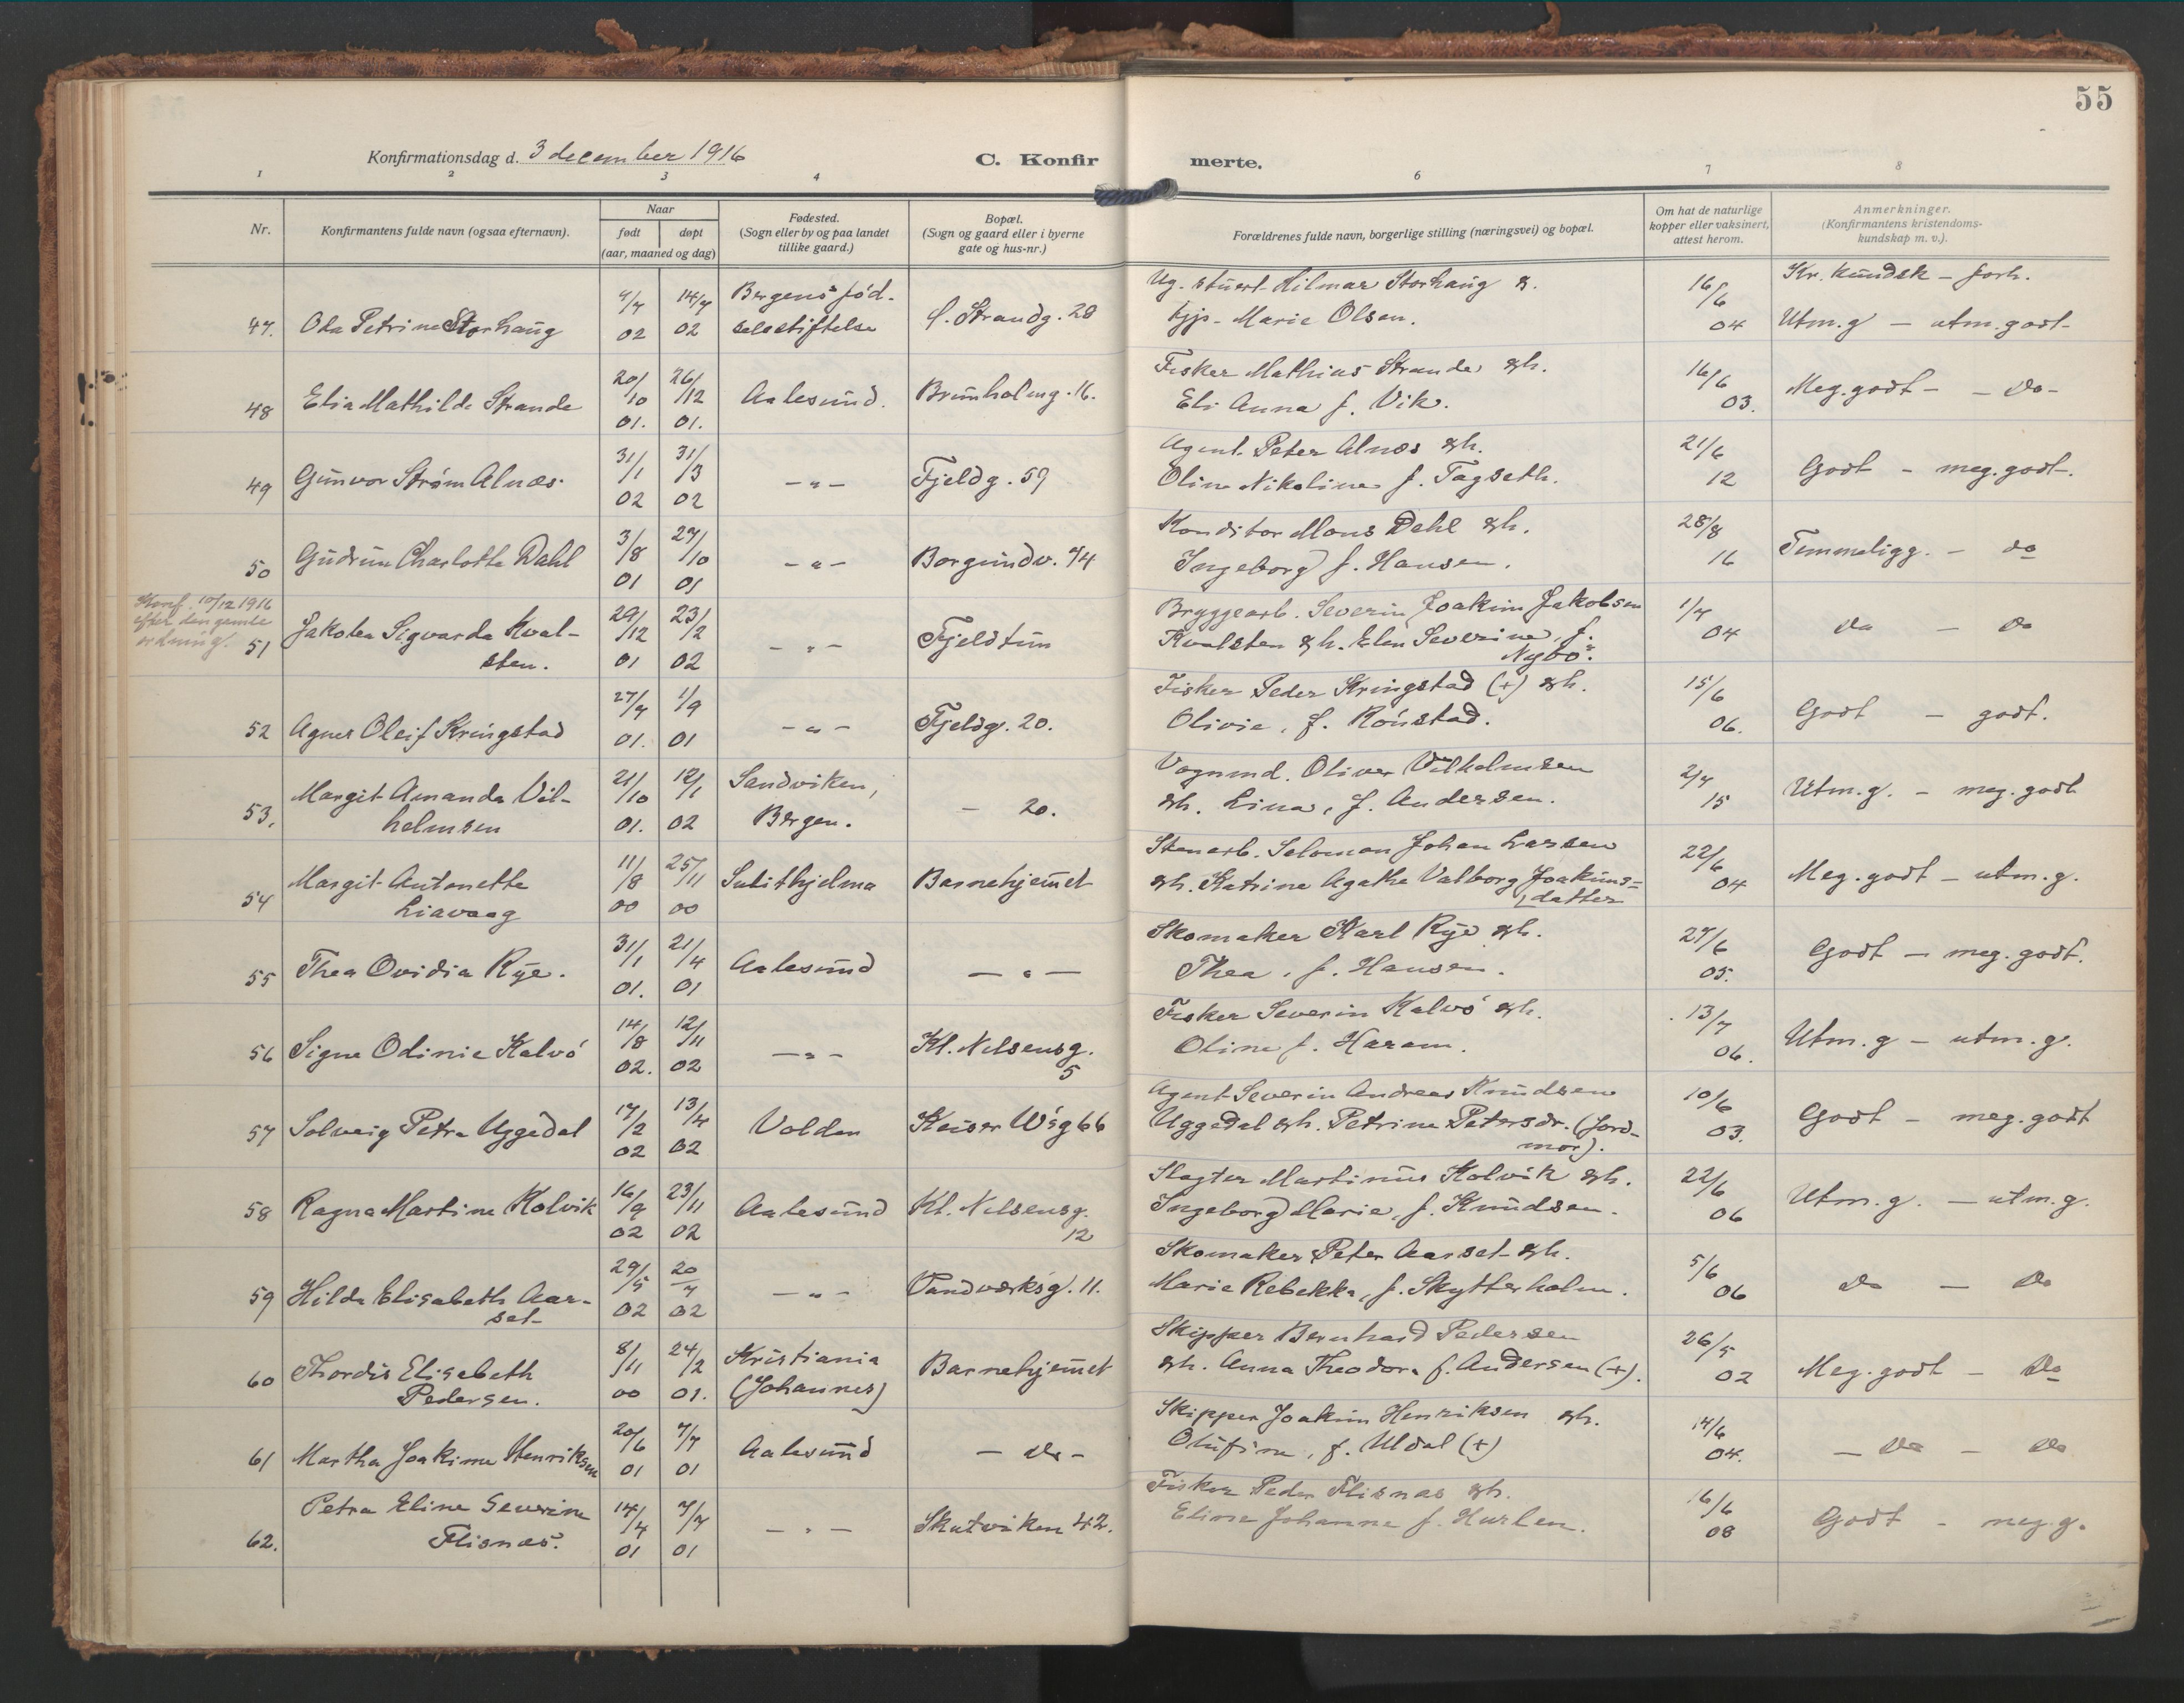 55
Konfirmationsdag d. 3 december 1916
C. Konfirmerte.
1 2 3 4 6 7 8
Nr.
Konfirmantens fulde navn (ogsaa efternavn).
Naar
født døpt
(aar, maaned og dag)
Fødested.
(Sogn eller by og paa landet
tillike gaard.)
Bopæl.
(Sogn og gaard eller i byerne
gate og hus-nr.)
Forældrenes fulde navn, borgerlige stilling (næringsvei) og bopæl.
Om hat de naturlige
kopper eller vaksinert,
attest herom.
Anmerkninger.
(Konfirmantens kristendoms-
kundskap m. v.).
Kr. kundsk - forh.
47. Petrine Storhaug 02 14/7 02 Bergens fød-
selsstiftelse Strandg. 28
Hilmar Storhaug
Marie Olsen.
16/6 04 Utm. g - utm. godt
48 Mathilde Strande 20/10 01. 26/12 01. Aalesund. Brunholmg. 16.
Fisker Mathias Strande &h.
Eli Anna f. Vik.
16/6 03. Meg. godt - - do -
49 Gunvor Strøm Alnæs 31/1 02 31/3 02 - " - Fjeldg. 59
Agent Peter Alnæs &h.
Oline Nikoline f. Tagseth.
21/6 12 Godt - meg. godt.
50 Gudrun Charlotte Dahl 3/8 01 27/10 01 - " - Borgundv. 74
Konditor Mons Dahl &h.
Ingeborg f. Hansen.
28/8 16 Temmelig g. - do
Konf. 10/12 1916
efter den gamle
ordning.
51 Jakoba Sigvarda Kval-
sten. 29/12 01 23/2 02 - " - Fjeldtun
Bryggearb. Severin Joakim Jakobsen
Kvalsten &h. Elen Severine, f.
Nybø.
1/7 04 do - do
52 Agnes Oleif Kringstad 27/7 01. 1/9 01 - " - Fjeldg. 20.
Fisker Peder Kringstad (+) &h.
Olivie, f. Rønstad.
15/6 06. Godt - godt.
53. Margit Amanda Vil-
helmsen 21/10 01. 12/1 02 Sandviken,
Bergen. - 20.
Vognmd. Oliver Vilhelmsen
&h. Lina, f. Andersen.
2/7 15 Utm. g. - meg. godt
54 Margit Antonette
Liavaag 11/8 00 25/11 00 Sulithjelma Barnehjemmet
Stenarb. Salomon Johan Larsen
&h. Katrine Agathe Valborg Joakims=
datter
22/6 04 Meg. godt - utm. g.
55 Thea Ovidia Rye. 31/1 01. 21/4 01 Aalesund - " -
Skomaker Karl Rye &h.
Thea, f. Hansen.
27/6 05. Godt - meg. godt.
56 Signe Odinie Kalvø 14/8 02. 12/11 02 - " - Kl. Nilsensg.
5
Fisker Severin Kalvø &h.
Oline f. Haram.
13/7 06. Utm. g - utm. g.
57 Solveig Petra Uggedal 17/2 02 13/4 02 Volden Keiser W's g 66
Agent Severin Andreas Knudsen
Uggedal &h. Petrine Petersdr. (jord-
mor).
10/6 03. Godt - meg. godt
58 Ragna Martine Kolvik 16/9 02 23/11 02 Aalesund Kl. Nilsensg.
12
Slagter Martinus Kolvik &h.
Ingeborg Marie, f. Knudsen.
22/6 06 Utm. g. - utm. g.
59 Hilda Elisabeth Aar-
set 29/5 02 20/7 02 - " - Vandværksg. 11.
Skomaker Peter Aarset &h.
Marie Rebekka, f. Skytterholm.
5/6 06 do - do
60 Thordis Elisabeth
Pedersen. 8/11 00 24/2 01. Kristiania
(Johannes) Barnehjemmet
Skipper Bernhard Pedersen
&h. Anna Theodora f. Andersen (+).
26/5 02 Meg. godt - do
61 Martha Joakime Henriksen 20/6 01 7/7 01 Aalesund - do -
Skipper Joakim Henriksen &h.
Olufine, f. Uldal (+)
14/6 04. - do - do
62. Petra Eline Severine
Flisnæs. 14/4 01 7/7 01 - " - Skutviken 42.
Fisker Peder Flisnæs &h.
Eline Johanne f. Hurlen.
16/6 08 Godt - meg. g.